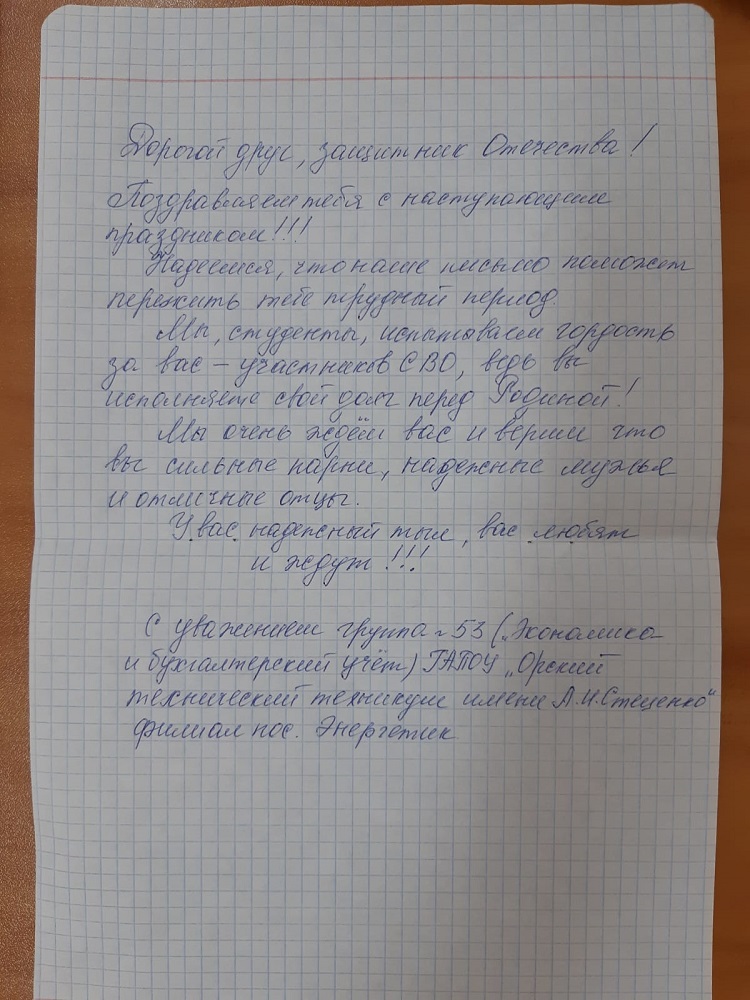 Дорогой друг, защитник Отечества!
Поздравляем тебя с наступающим
праздником!!!
Надеемся, что наше письмо поможет
пережить тебе трудный период.
Мы, студенты, испытываем гордость
за вас – участников СВО, ведь вы
исполняете свой долг перед Родиной!
Мы очень ждём вас и верим что
вы сильные парни, надежные мужья
и отличные отцы.
У вас надежный тыл, вас любят
и ждут!!!
С уважением группа ~53 („Экономика
и бухгалтерский учёт) ГАПОУ „Орский
технический техникум имени А.И.Стеценко"
филиал пос. Энергетик